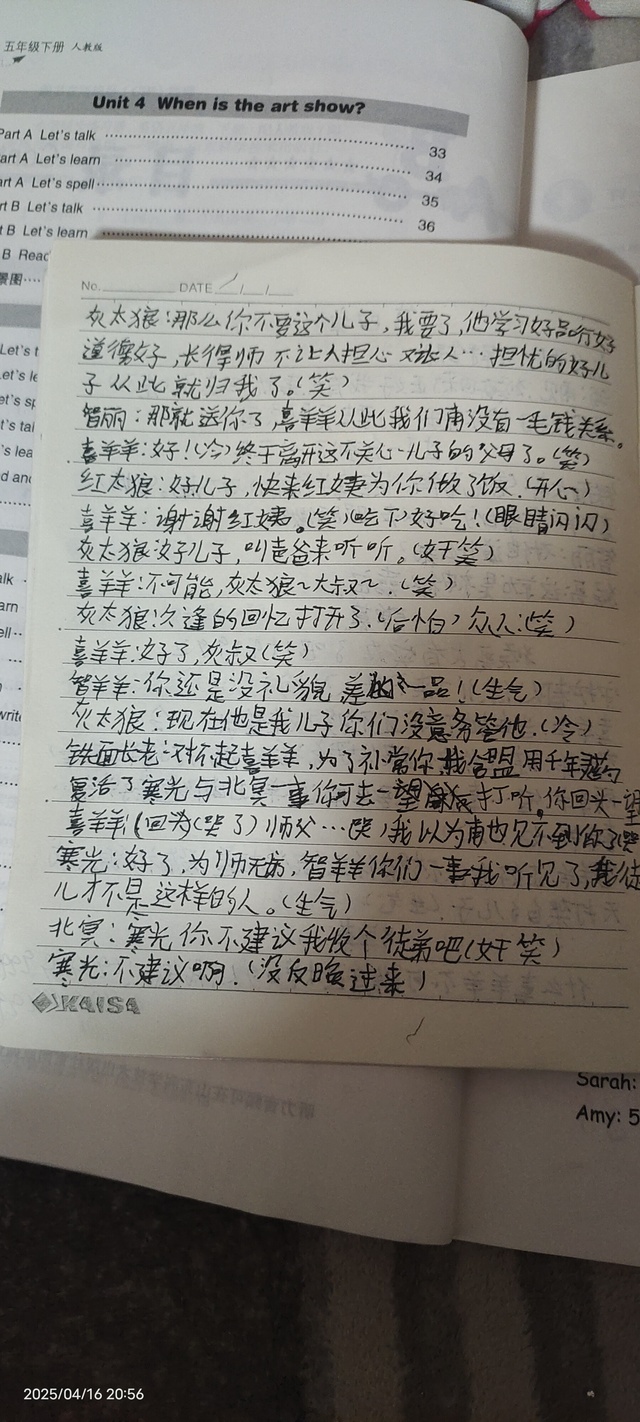 五年级下册 人教版
Unit 4 When is the art show?
Part A Let's talk 33
Part A Let's learn 34
Part A Let's spell 35
Part B Let's talk 36
B Let's learn
B Read
景图
Let's t
Let's le
Let's sp
t's tal
's lea
d and
alk
arn
ell
write
No. DATE
灰太狼:那么你不要这个儿子,我要了,他学习好品行好
道德好,长得帅 不让人担心 又让人…担忧的好儿
子 从此就归我了。(笑)
智丽:那就送你了 喜羊羊从此我们再没有一毛钱关系。
喜羊羊:好!(冷)终于离开这不关心儿子的父母了。(笑)
红太狼:好儿子,快来红姨为你做了饭.(开心)
喜羊羊:谢谢红姨。(笑)(吃下)好吃!(眼睛闪闪)
灰太狼:好儿子,叫老爸来听听。(奸笑)
喜羊羊:不可能,灰太狼~大叔~.(笑)
灰太狼:久逢的回忆打开了.(后怕)众人:(笑)
喜羊羊:好了,灰叔(笑)
智羊羊:你还是没礼貌 差 品!(生气)
灰太狼:现在他是我儿子你们没意务管他.(冷)
铁面长老:对怀起喜羊羊,为了补常你 我含盟用千年
复活了寒光与北冥一事你可去一望 打听,你回头一望
喜羊羊(回头)(哭了)师父…(哭)我以为再也见不到你了哭
寒光:好了,为师无妨,智羊羊你们一事我听见了,我徒
儿才不是这样的人。(生气)
北冥:寒光你不建议我收个徒弟吧(奸笑)
寒光:不建议啊.(没反映过来)
KAISA
Sarah:
Amy: 5
2025/04/16 20:56